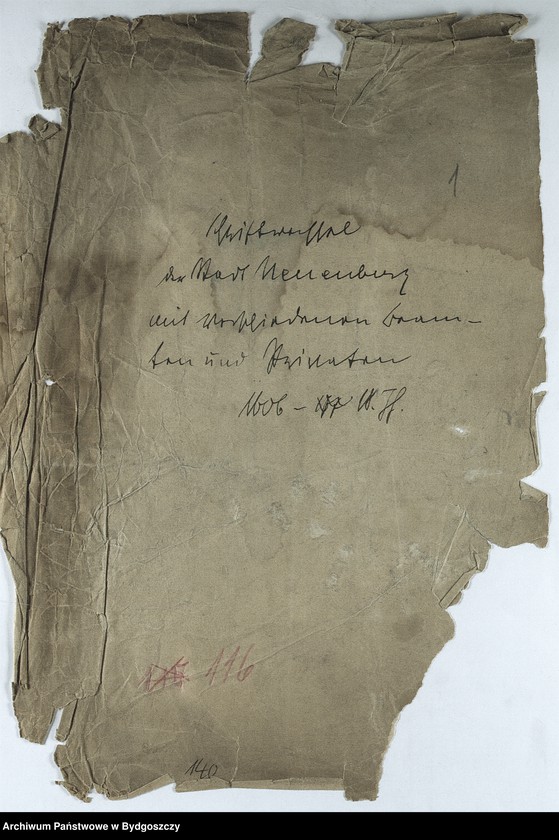 1
Schriftwechsel
der Stadt Neuenburg
mit verschiedenen Beam-
ten und Privaten
1606 – 18. Jh.
116
140
Archiwum Państwowe w Bydgoszczy